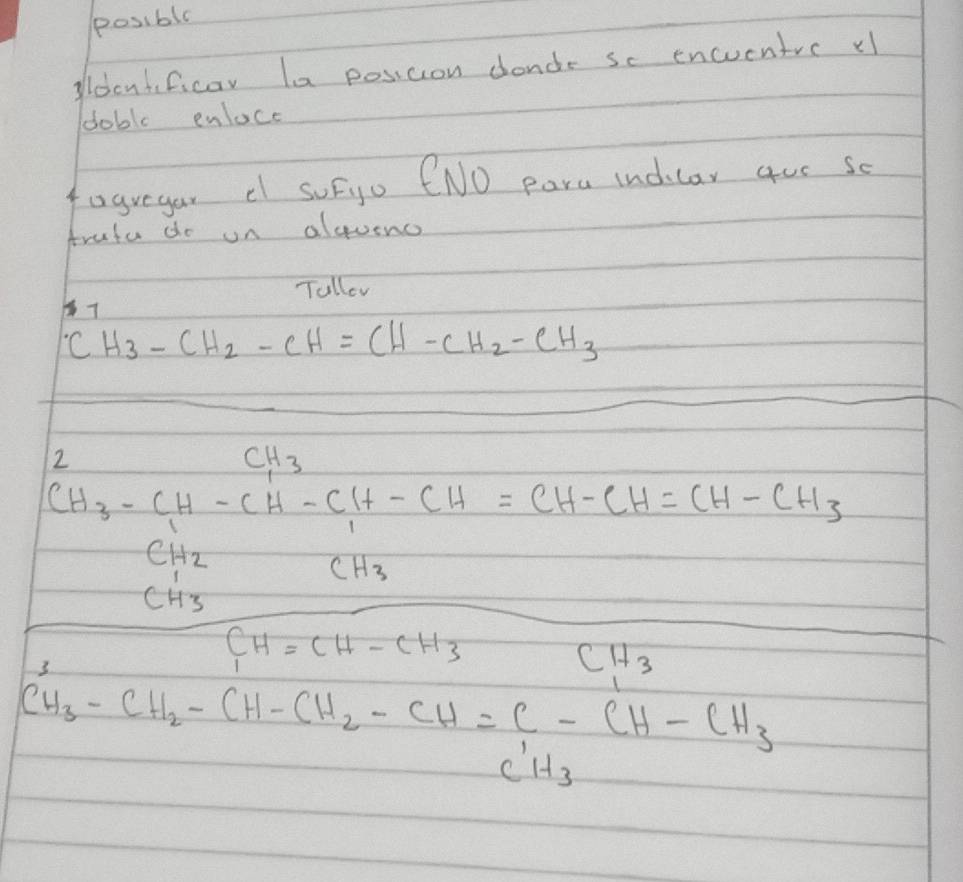 posible
3 Identificar la posicion donde se encuentre el
doble enlace
4 agregar el sufijo ENO para indicar que se
trata de un alqueno
Taller
1
CH3 - CH2 - CH = CH - CH2 - CH3
2
CH3
CH3 - CH - CH - CH - CH = CH - CH = CH - CH3
CH2 CH3
CH3
CH = CH - CH3 CH3
3
CH3 - CH2 - CH - CH2 - CH = C - CH - CH3
CH3